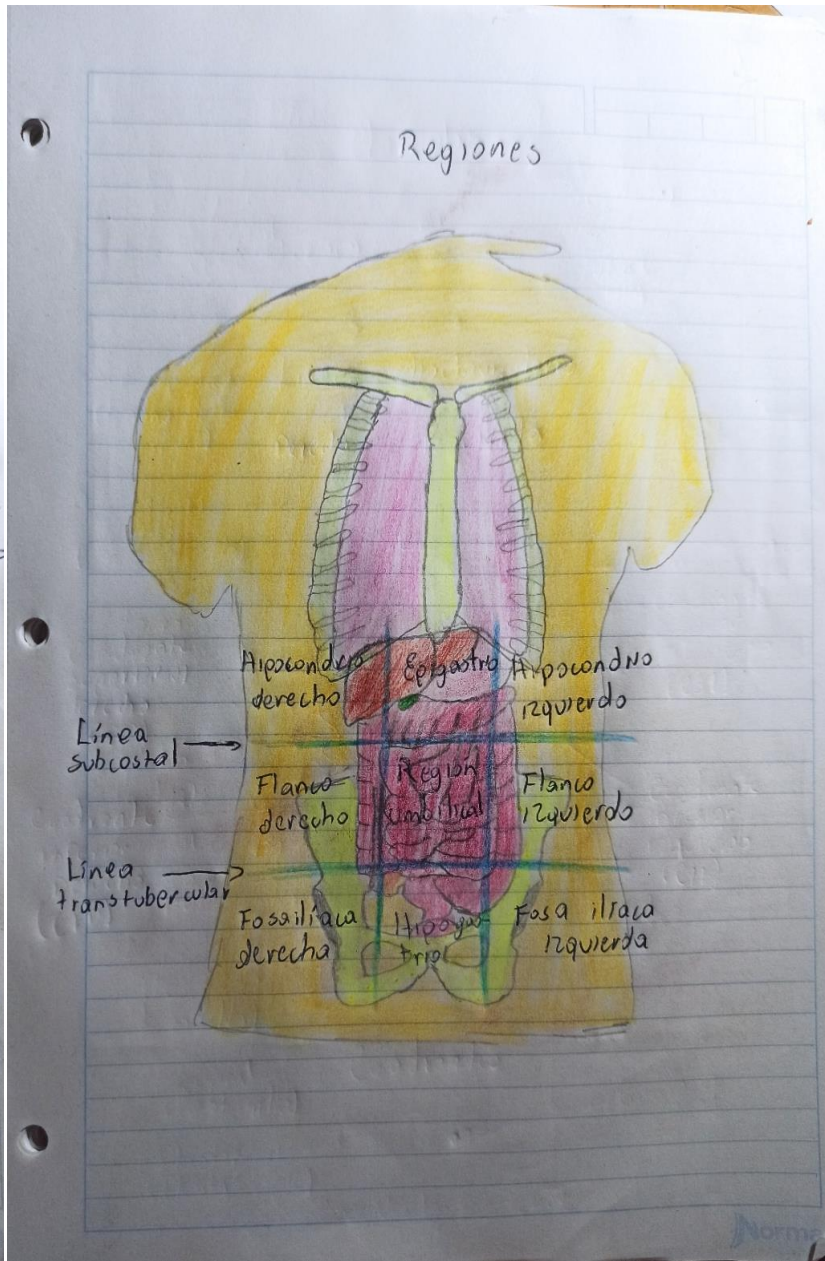 Regiones
Hipocondrio
derecho
Epigastrio
Hipocondrio
izquierdo
Línea
subcostal
Flanco
derecho
Región
umbilical
Flanco
izquierdo
Línea
transtubercular
Fosa ilíaca
derecha
Hipogas
trio
Fosa iliaca
izquierda
Norma